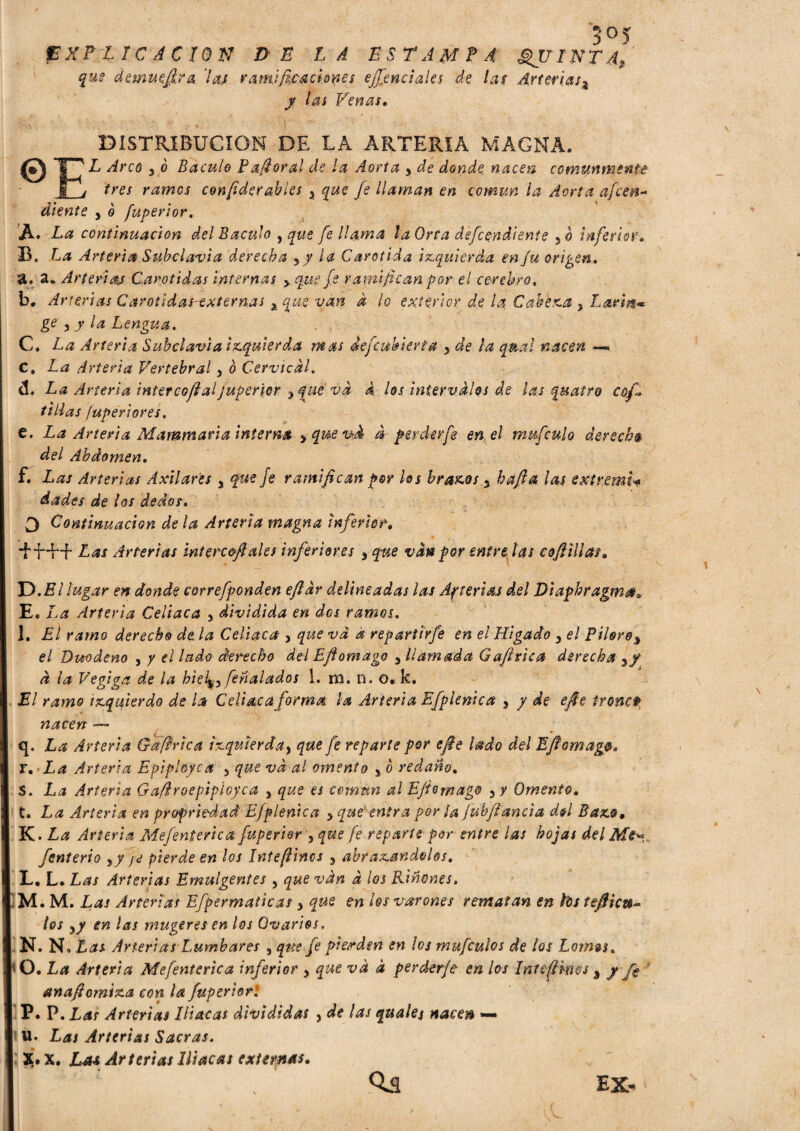 305
EXPLICACION DE LA ESTAMPA QUINTA,
que demuestra las ramificaciones essenciales de las Arterias,
y las Venas.
DISTRIBUCION DE LA ARTERIA MAGNA.
EL Arco, ò Baculo Pastoral de la Aorta, de donde nacen comunmente
tres ramos considerables, que se llaman en comun la Aorta ascen-
diente, ò superior.
A. La continuacion del Baculo, que se llama la Orta descendiente, ò inferior.
B. La Arteria Subclavia derecha, y la Carotida izquierda en su origen.
a. a. Arterias Carotidas internas, que se ramifican por el cerebro.
b. Arterias Carotidas externas, que vàn à lo exterior de la Cabeza, Larin-
ge, y la Lengua.
C. La Arteria Subclavia izquierda mas descubierta, de la qual nacen —
c. La Arteria Vertebral, ò Cervicàl.
d. La Arteria intercostal superior, que và à los intervàlos de las quatro cos-
tillas superiores.
e. La Arteria Mammaria interna, que và à perderse en el musculo derecho
del Abdomen.
f. Las Arterias Axilares, que se ramifican por los brazos, hasta las extremi-
dades de los dedos.
Continuacion de la Arteria magna inferior.
†††† Las Arterias intercostales inferiores, que vàn por entre las costillas.
D. El lugar en donde corresponden estàr delineadas las Arterias del Diaphragma.
E. La Arteria Celiaca, dividida en dos ramos.
1. El ramo derecho de la Celiaca, que và à repartirse en el Higado, el Piloro,
el Duodeno, y el lado derecho del Estomago, llamada Gastrica derecha, y
à la Vegiga de la hiel, señalados l. m. n. o. k.
El ramo izquierdo de la Celiaca forma la Arteria Esplenica, y de este tronco
nacen —
q. La Arteria Gastrica izquierda, que se reparte por este lado del Estomago.
r. La Arteria Epiployca, que và al omento, ò redaño.
s. La Arteria Gastroepiployca, que es comun al Estomago, y Omento.
t. La Arteria en propriedad Esplenica, que entra por la substancia del Bazo.
K. La Arteria Mesenterica superior, que se reparte por entre las hojas del Me-
senterio, y se pierde en los Intestinos, abrazandolos.
L. L. Las Arterias Emulgentes, que vàn à los Riñones.
M. M. Las Arterias Espermaticas, que en los varones rematan en los testicu-
los, y en las mugeres en los Ovarios.
N. N. Las Arterias Lumbares, que se pierden en los musculos de los Lomos.
O. La Arteria Mesenterica inferior, que và à perderse en los Intestinos, y se
anastomiza con la superior.
P. P. Las Arterias Iliacas divididas, de las quales nacen —
u. Las Arterias Sacras.
X. x. Las Arterias Iliacas externas.
Qq EX-